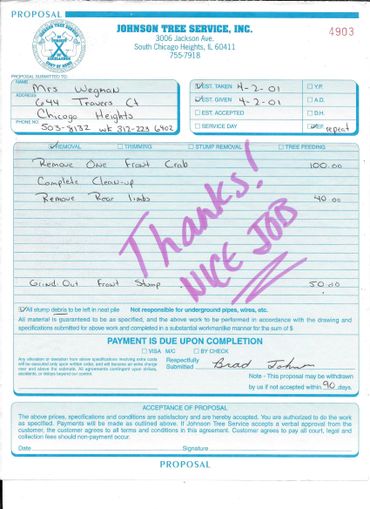 PROPOSAL
JOHNSON TREE SERVICE, INC.
3006 Jackson Ave.
South Chicago Heights, IL 60411
755-7918
4903
PROPOSAL SUBMITTED TO:
NAME
Mrs Wegman
ADDRESS
644 Travers Ct
Chicago Heights
PHONE NO.
503-8132 wk 312-223 6402
EST. TAKEN 4-2-01
EST. GIVEN 4-2-01
EST. ACCEPTED
SERVICE DAY
Y.P.
A.D.
D.H.
REF repeat
REMOVAL THINNING STUMP REMOVAL TREE FEEDING
Remove One Front Crab 100.00
Complete Clean-up
Remove Rear limbs 40.00
Thanks!
NICE JOB
Grind Out Front Stump 50.00
All stump debris to be left in neat pile Not responsible for underground pipes, wires, etc.
All material is guaranteed to be as specified, and the above work to be performed in accordance with the drawing and
specifications submitted for above work and completed in a substantial workmanlike manner for the sum of $
PAYMENT IS DUE UPON COMPLETION
VISA M/C BY CHECK
Any alteration or deviation from above specifications involving extra costs
will be executed only upon written order, and will become an extra charge
over and above the estimate. All agreements contingent upon strikes,
accidents, or delays beyond our control.
Respectfully
Submitted Brad Johnson
Note - This proposal may be withdrawn
by us if not accepted within 90 days.
ACCEPTANCE OF PROPOSAL
The above prices, specifications and conditions are satisfactory and are hereby accepted. You are authorized to do the work
as specified. Payments will be made as outlined above. If Johnson Tree Service accepts a verbal approval from the
customer, the customer agrees to all terms and conditions in this agreement. Customer agrees to pay all court, legal and
collection fees should non-payment occur.
Date Signature
PROPOSAL